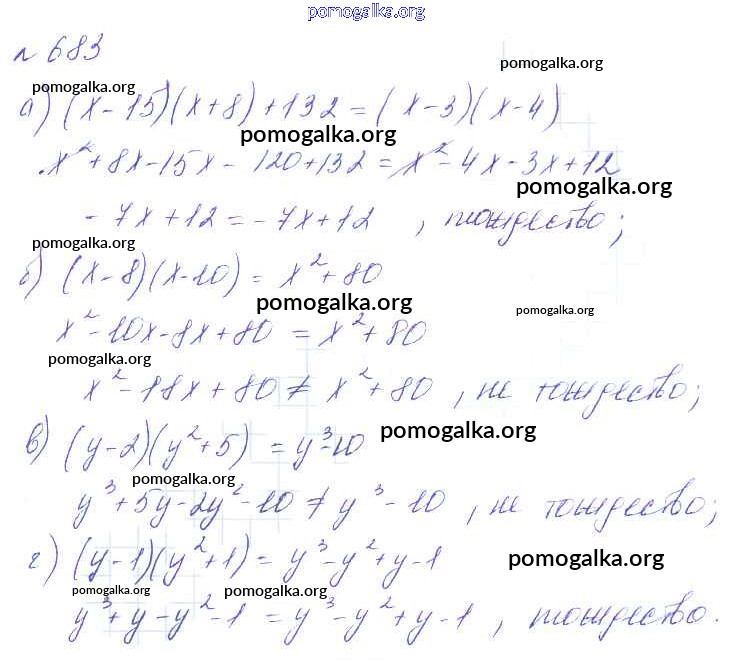 pomogalka.org
№ 683
pomogalka.org
pomogalka.org
а) (x-15)(x+8)+132=(x-3)(x-4)
pomogalka.org
x²+8x-15x-120+132=x²-4x-3x+12
pomogalka.org
-7x+12=-7x+12, тождество;
pomogalka.org
б) (x-8)(x-10)=x²+80
pomogalka.org
pomogalka.org
x²-10x-8x+80=x²+80
pomogalka.org
x²-18x+80≠x²+80, не тождество;
в) (y-2)(y²+5)=y³-10
pomogalka.org
pomogalka.org
y³+5y-2y²-10≠y³-10, не тождество;
г) (y-1)(y²+1)=y³-y²+y-1
pomogalka.org
pomogalka.org
pomogalka.org
y³+y-y²-1=y³-y²+y-1, тождество.